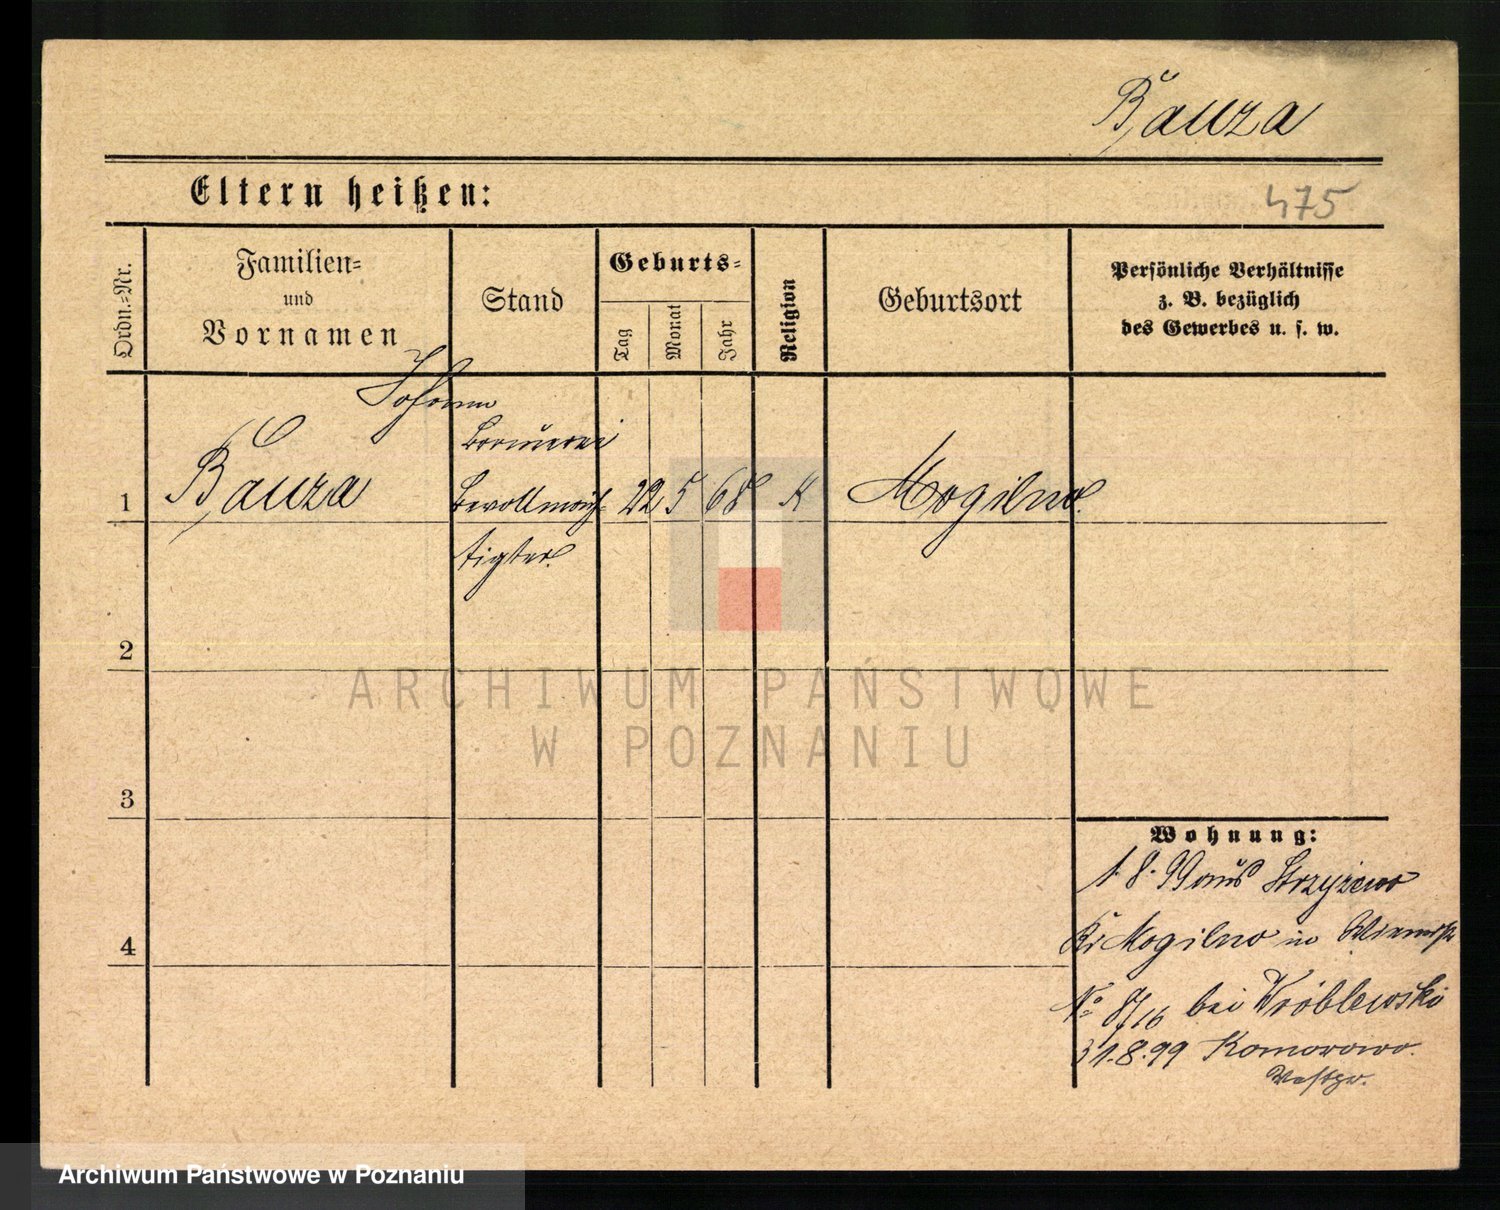 Bauza
Eltern heißen:
475
Ordn.-Nr.
Familien-
und
Vornamen
Stand
Geburts-
Tag
Monat
Jahr
Religion
Geburtsort
Persönliche Verhältnisse
z. B. bezüglich
des Gewerbes u. s. w.
Johann
Brauerei
1 Bauza Bevollmäch- 22 5 68 K Mogilno.
tigter.
2
ARCHIWUM PAŃSTWOWE
W POZNANIU
3
Wohnung:
1.8.99 aus Strzyżewo
4
Kr Mogilno in
No 8/16 bei Wróblewski
31.8.99 Komorowo.
Westpr.
Archiwum Państwowe w Poznaniu